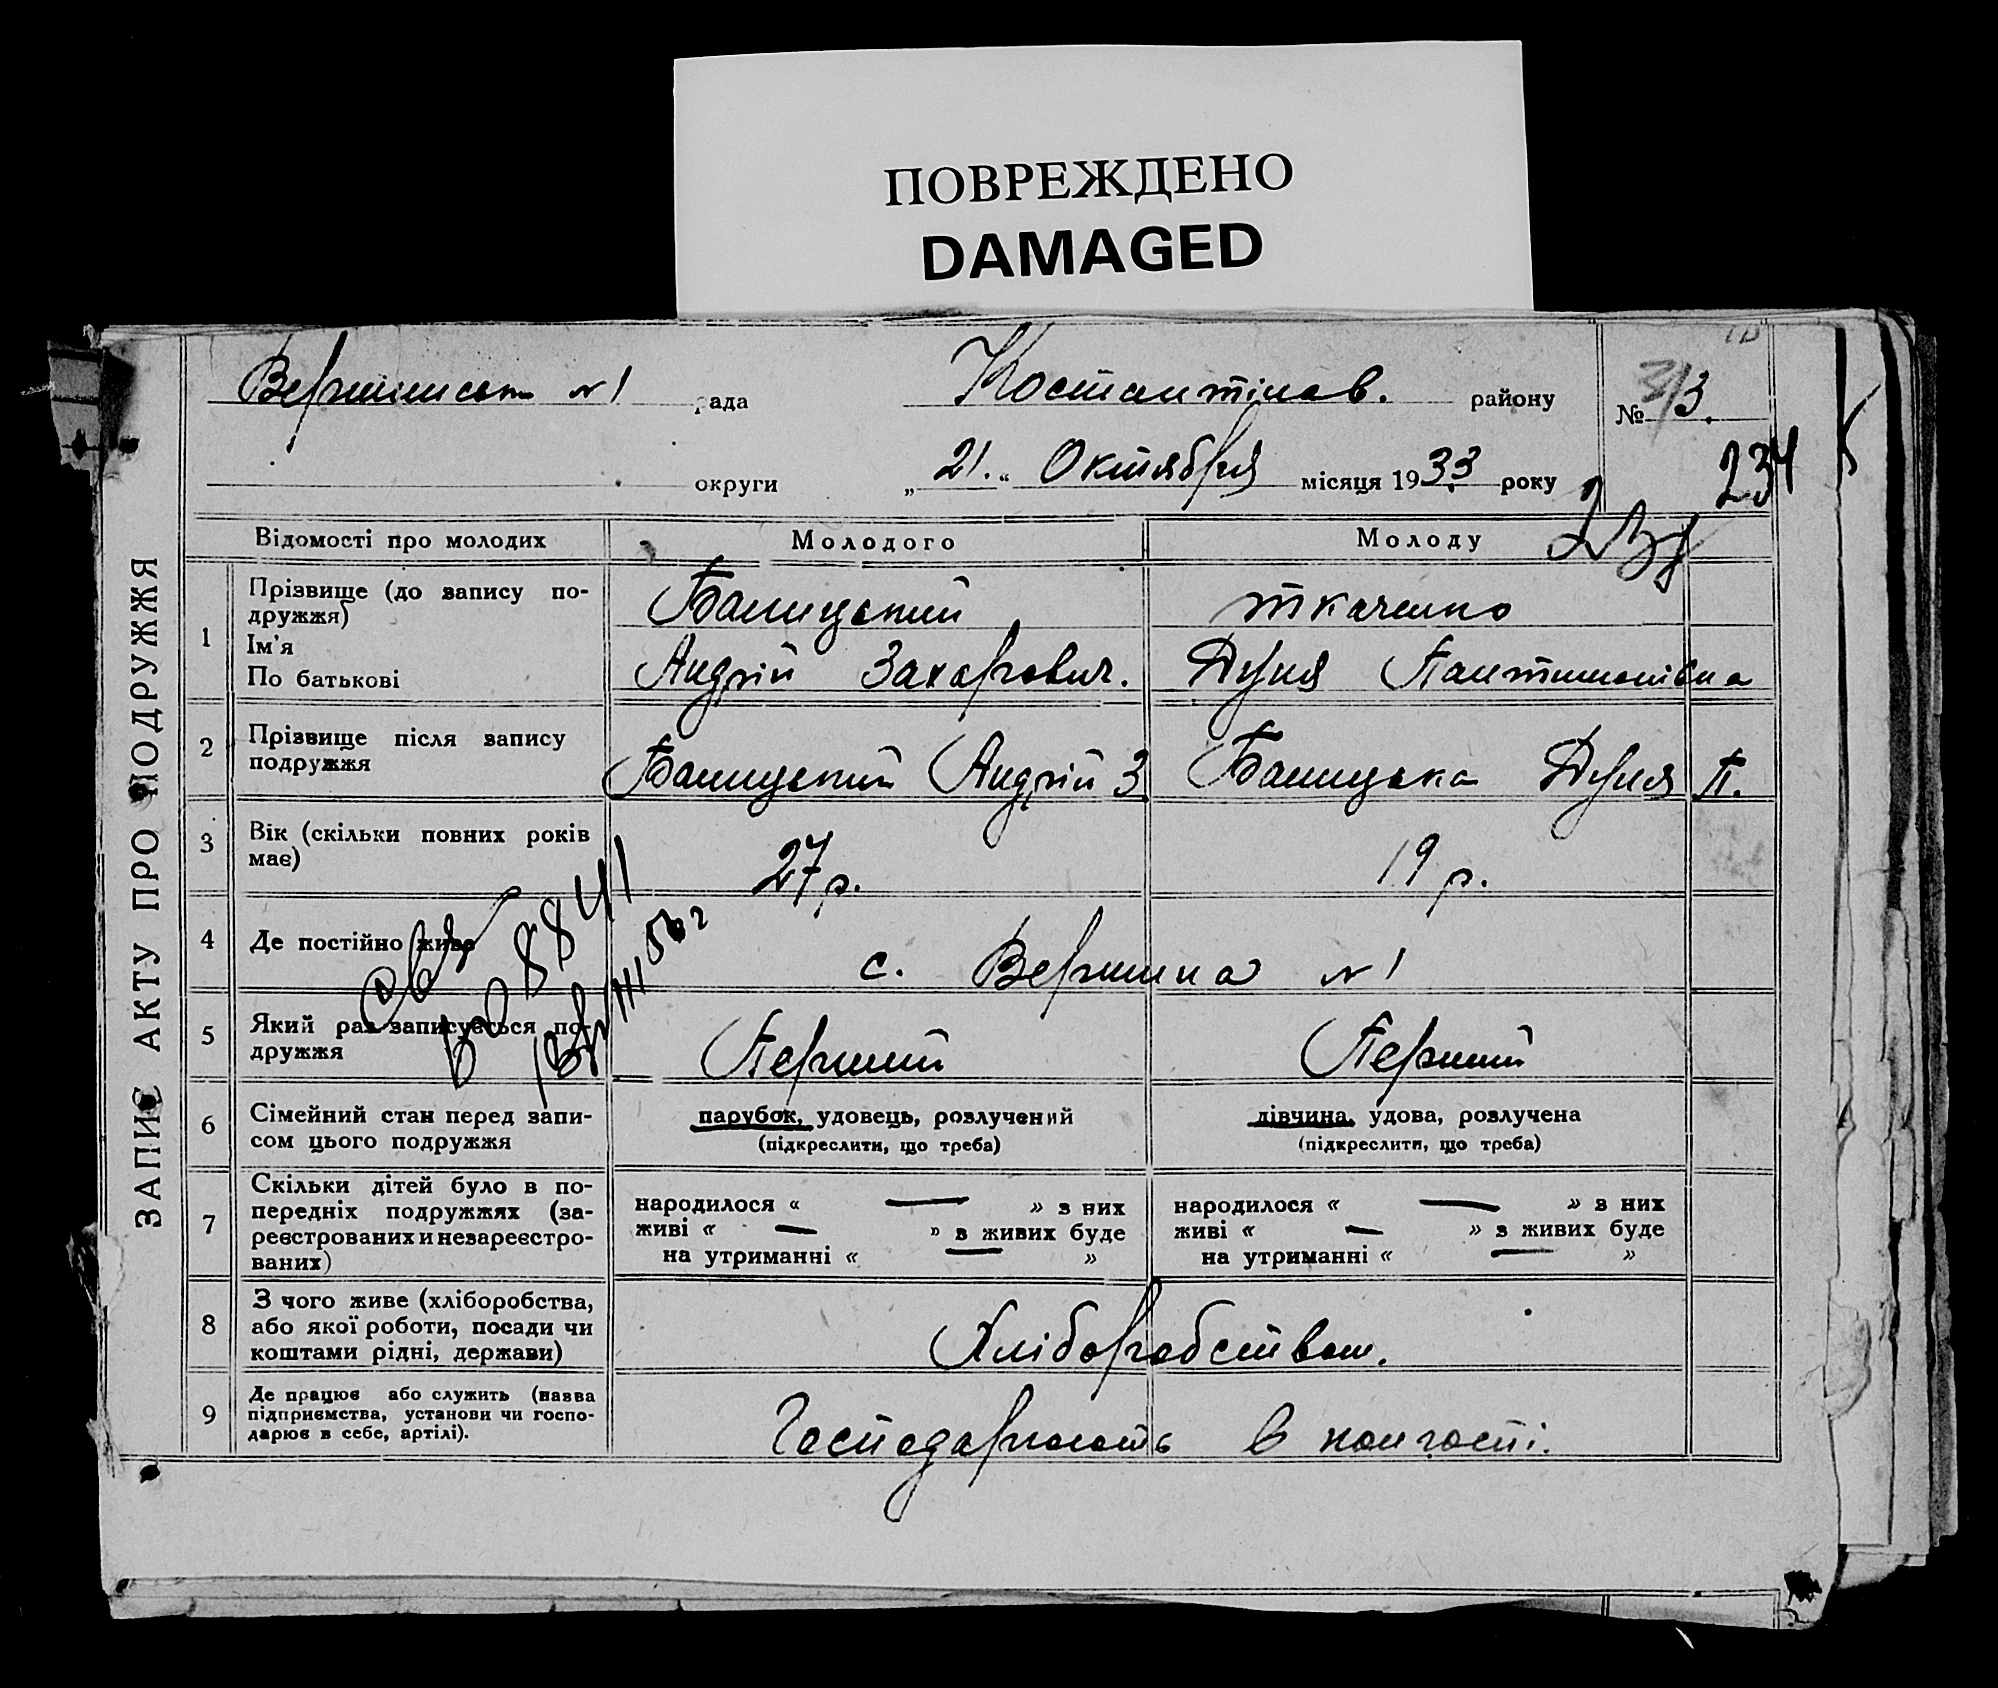 ПОВРЕЖДЕНО
DAMAGED
ЗАПИС АКТУ ПРО ПОДРУЖЖЯ
Вершинська №1 рада Костантінов. району № 3.
округи „21.“ Октября місяця 1933 року
234
Відомості про молодих Молодого Молоду
1 Прізвище (до запису по-
дружжя) ткаченко
Ім'я
По батькові Андрій Захарович. Дуня Пантимонівна
2 Прізвище після запису
подружжя Андрій З Дуня П.
3 Вік (скільки повних років
має) 27 р. 19 р.
4 Де постійно живе с. Вершина №1
5 Який раз записується по-
дружжя Перший Перший
6 Сімейний стан перед запи-
сом цього подружжя
парубок, удовець, розлучений
(підкреслити, що треба)
дівчина, удова, розлучена
(підкреслити, що треба)
7 Скільки дітей було в по-
передніх подружжях (за-
реєстрованих и незареєстро-
ваних)
народилося « — » з них
живі « — » з живих буде
на утриманні « — »
народилося « — » з них
живі « — » з живих буде
на утриманні « — »
8 З чого живе (хліборобства,
або якої роботи, посади чи
коштами рідні, держави)
Хліборобством.
9 Де працює або служить (назва
підприємства, установи чи госпо-
дарює в себе, артілі).
Господарюють в